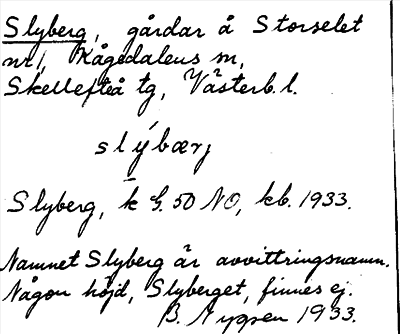 Slyberg, gårdar å Storselet
nr 1, Kågedalens sn,
Skellefteå tg, Västerb. l.
slý̄bærj
Slyberg, k G. 50 NO, kb. 1933.
Namnet Slyberg är avvittringsnamn.
Någon höjd, Slyberget, finnes ej.
B. Nygren 1933.